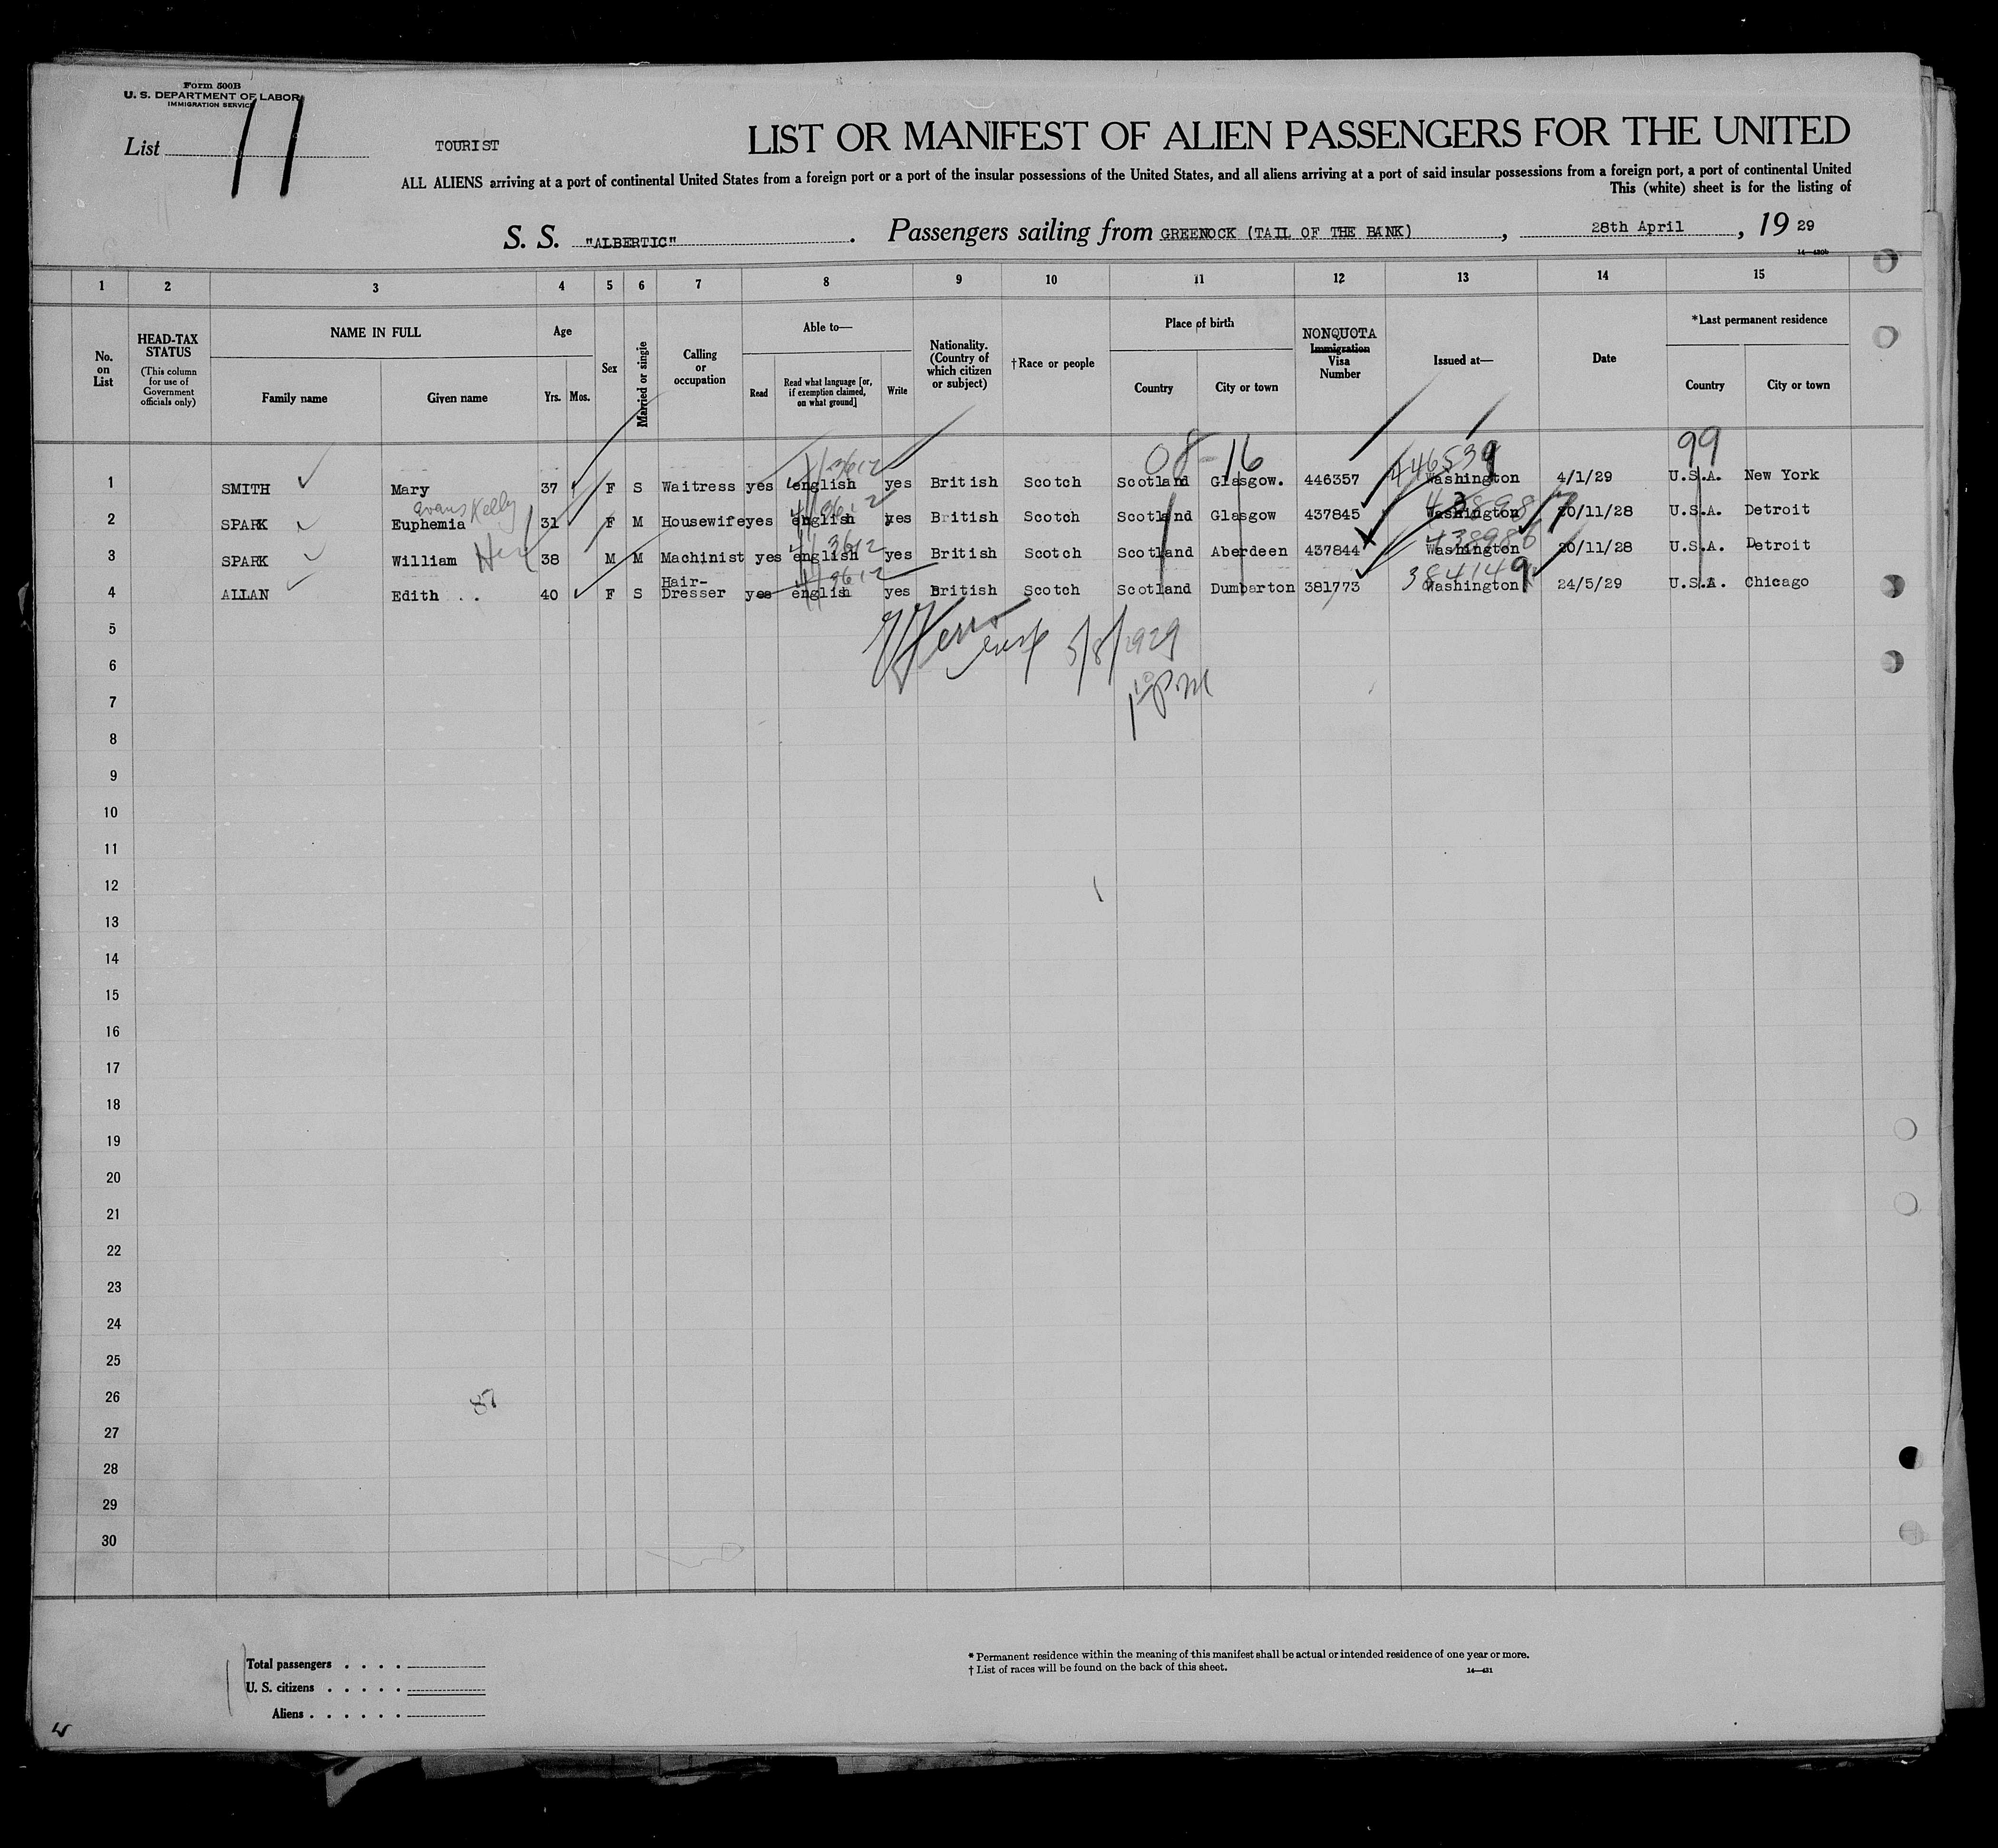 Form 500B
U. S. DEPARTMENT OF LABOR
IMMIGRATION SERVICE
List 11
TOURIST
LIST OR MANIFEST OF ALIEN PASSENGERS FOR THE UNITED
ALL ALIENS arriving at a port of continental United States from a foreign port or a port of the insular possessions of the United States, and all aliens arriving at a port of said insular possessions from a foreign port, a port of continental United
This (white) sheet is for the listing of
S. S. "ALBERTIC" . Passengers sailing from GREENOCK (TAIL OF THE BANK) , 28th April , 19 29
14—430b
1 2 3 4 5 6 7 8 9 10 11 12 13 14 15
No. on List
HEAD-TAX STATUS (This column for use of Government officials only)
NAME IN FULL Family name Given name
Age Yrs. Mos.
Sex
Married or single
Calling or occupation
Able to— Read Read what language [or, if exemption claimed, on what ground] Write
Nationality. (Country of which citizen or subject)
†Race or people
Place of birth Country City or town
NONQUOTA Immigration Visa Number
Issued at—
Date
*Last permanent residence Country City or town
08-16 99
3612 446539
1 SMITH Mary 37 F S Waitress yes english yes British Scotch Scotland Glasgow. 446357 Washington 4/1/29 U.S.A. New York
Evans Kelly 3612 438987
2 SPARK Euphemia 31 F M Housewife yes english yes British Scotch Scotland Glasgow 437845 Washington 20/11/28 U.S.A. Detroit
3612 438986
3 SPARK William 38 M M Machinist yes english yes British Scotch Scotland Aberdeen 437844 Washington 20/11/28 U.S.A. Detroit
3612 384149
4 ALLAN Edith 40 F S Hair-Dresser yes english yes British Scotch Scotland Dumbarton 381773 Washington 24/5/29 U.S.A. Chicago
5
5/8/1929
6
PM
7
8
9
10
11
12
13
14
15
16
17
18
19
20
21
22
23
24
25
26
87
27
28
29
30
Total passengers
U. S. citizens
Aliens
* Permanent residence within the meaning of this manifest shall be actual or intended residence of one year or more.
† List of races will be found on the back of this sheet.
14—431